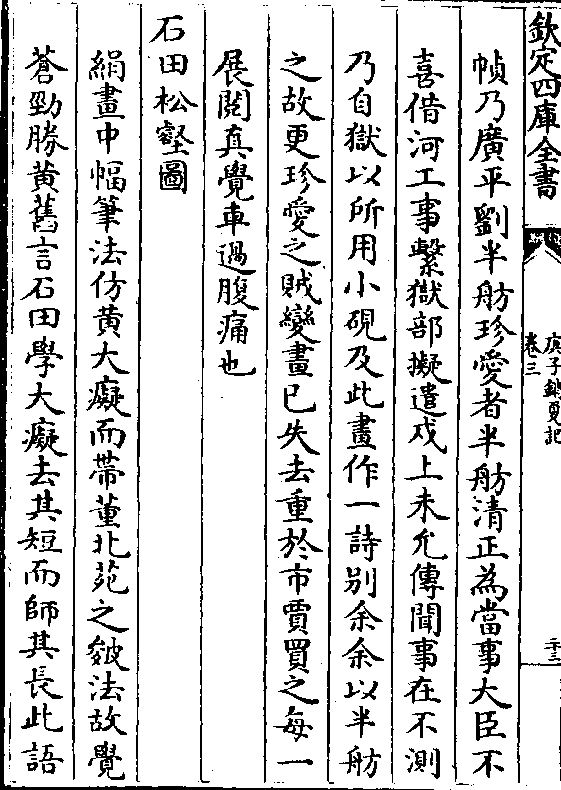 欽定四庫全書
庚子銷夏記
卷三
二十三
幀乃廣平劉半舫珍愛者半舫清正為當事大臣不
喜借河工事繫獄部擬遣戍上未允傳聞事在不測
乃自獄以所用小硯及此畫作一詩别余余以半舫
之故更珍愛之賊變畫已失去重於市賈買之每一
展閱真覺車過腹痛也
石田松壑圖
絹畫中幅筆法仿黄大癡而帶董北苑之皴法故覺
蒼勁勝黄舊言石田學大癡去其短而師其長此語